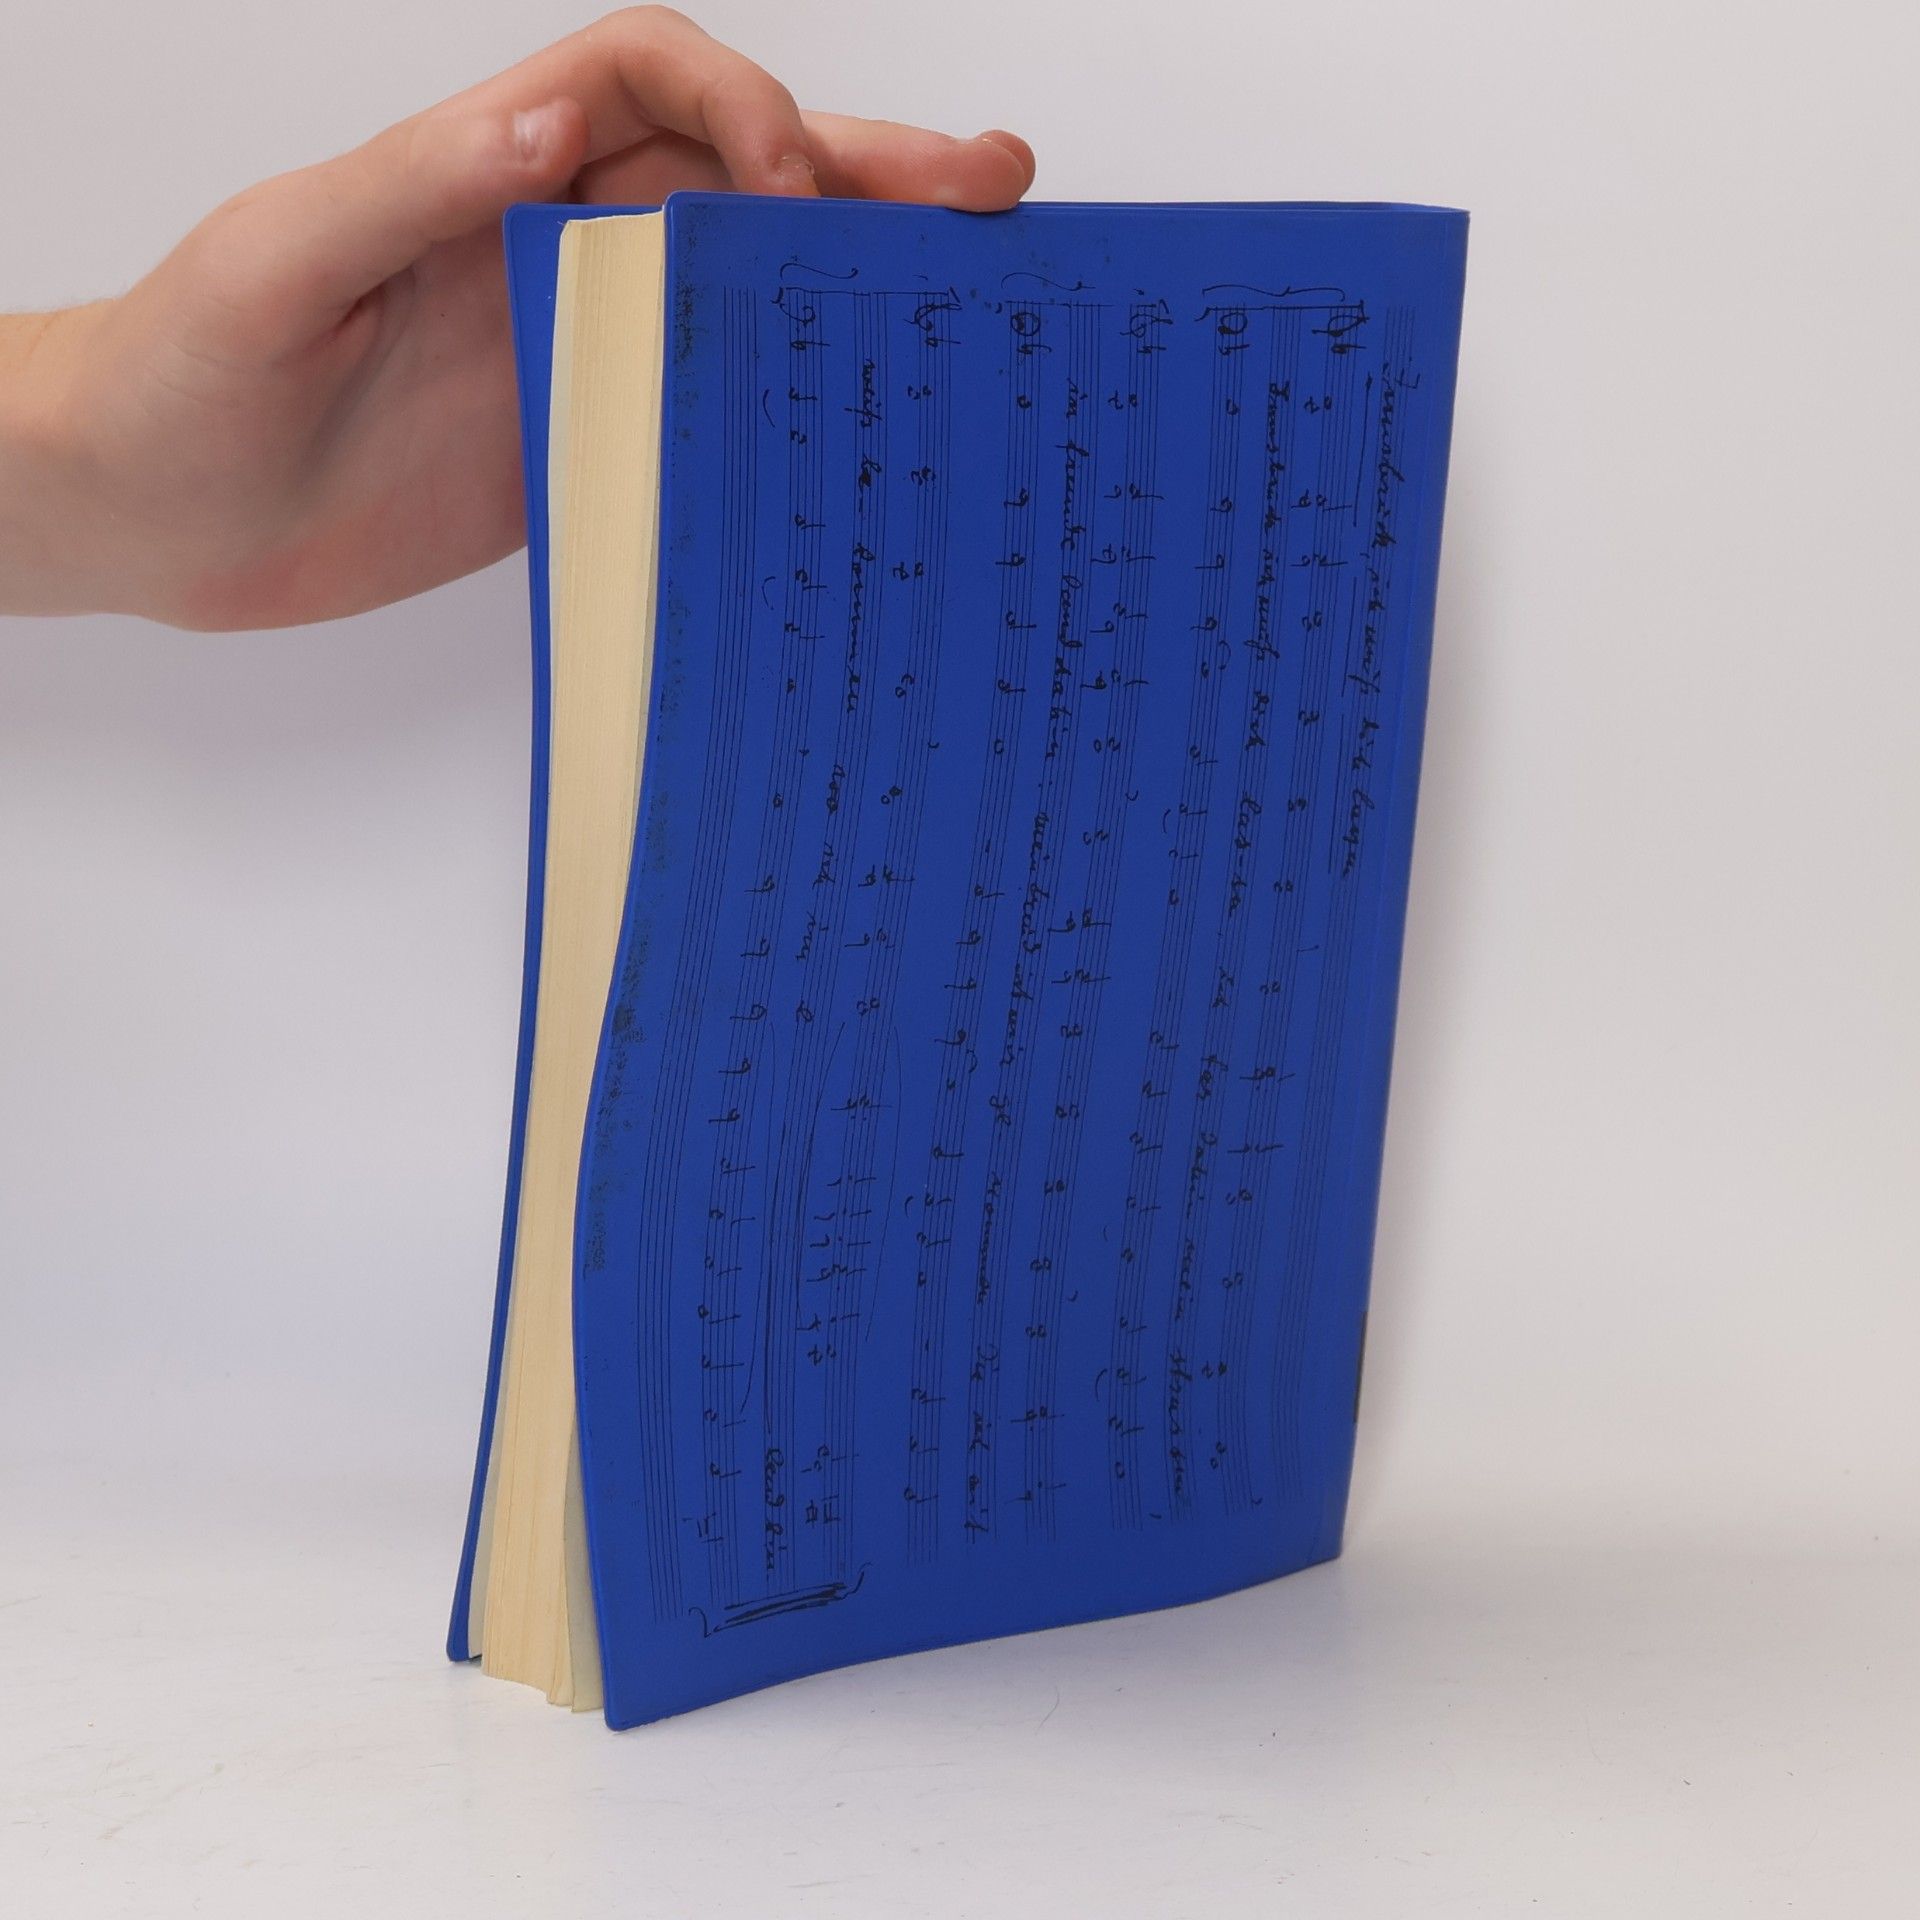 Innsbruck, ich muß dich lassen
Innsbruck ich muß dich las-sen, ich far dahin mein strassen
in fremde land dahin: mein freud ist mir ge- nommen die ich nit
weiß be- kommen wo ich im e
lend bin.